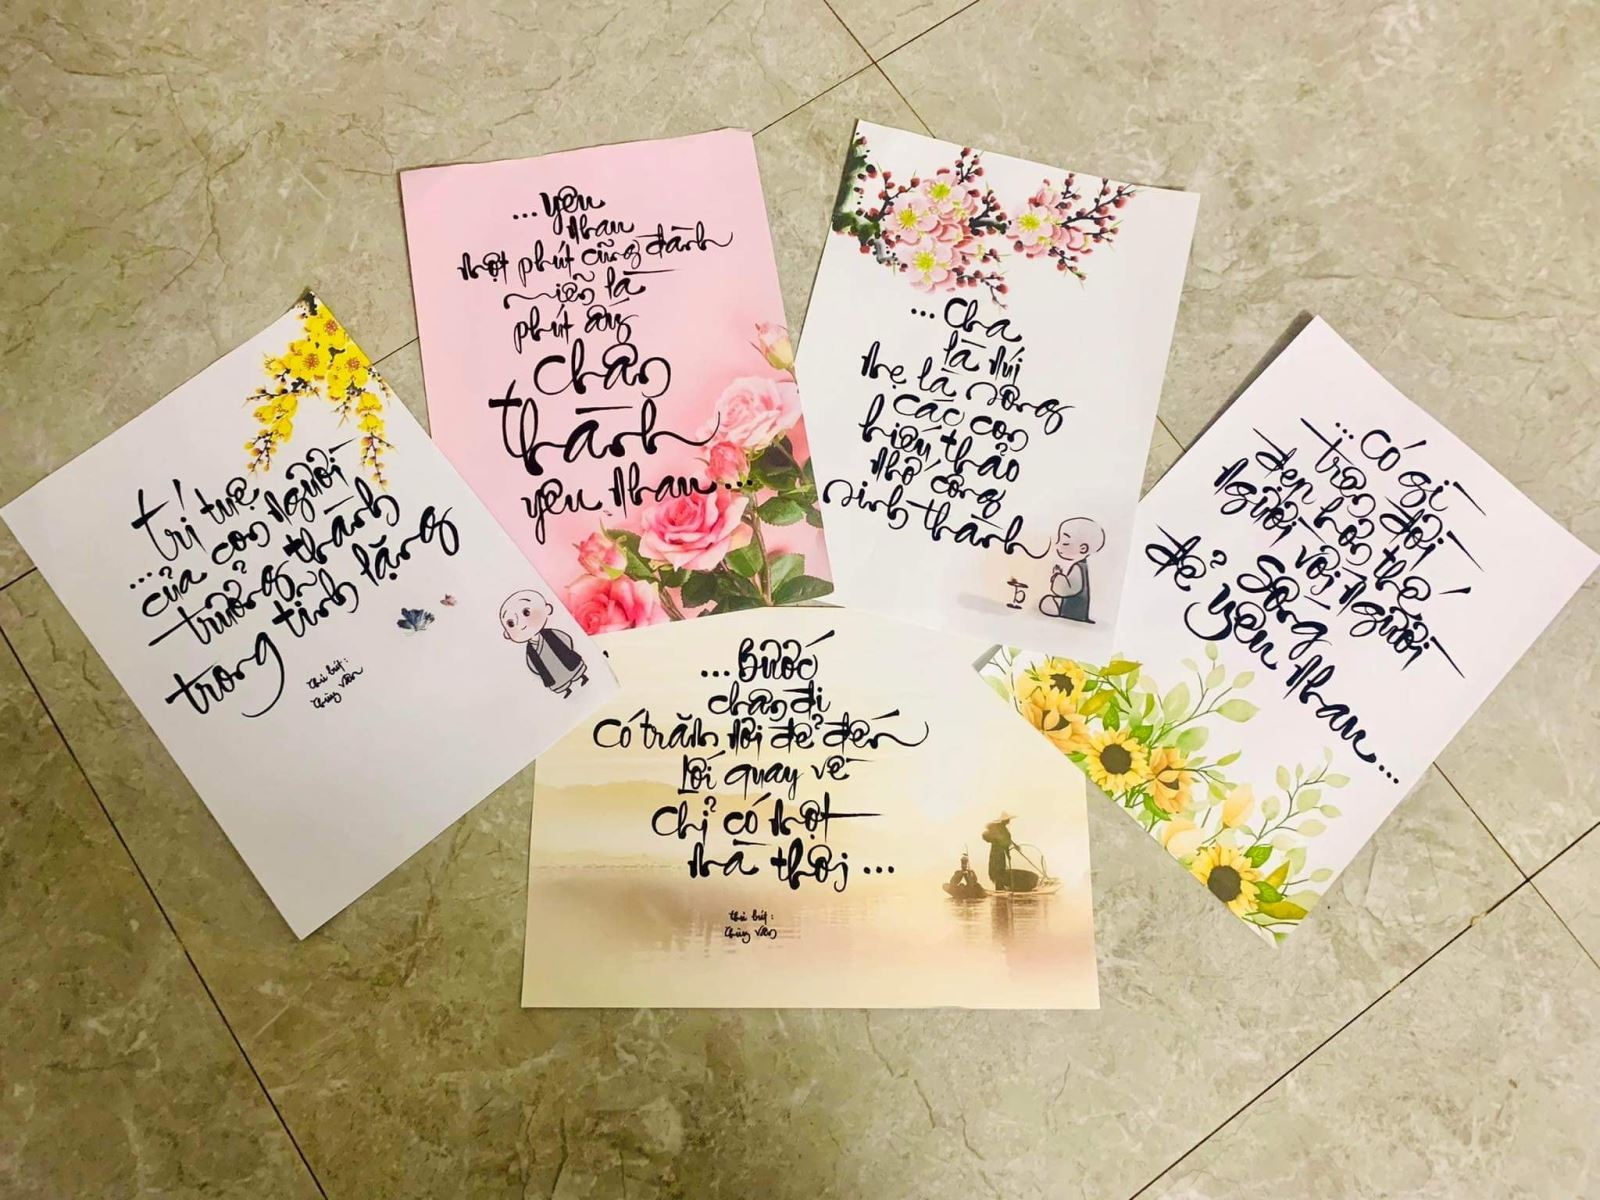 trí tuệ
...của con người
trưởng thành
trong tĩnh lặng
thủ bút:
thùy vân
...yêu
nhau
một phút cũng đành
miễn là
phút ấy
chân
thành
yêu nhau...
...Cha
là núi
mẹ là sông
các con
hiếu thảo
nhớ công
sinh thành
...Có gì
trên đời
đẹp hơn thế
người với người
sống
để yêu nhau...
...Bước
chân đi
có trăm nơi để đến
Lối quay về
chỉ có một
mà thôi...
thủ bút:
thùy vân